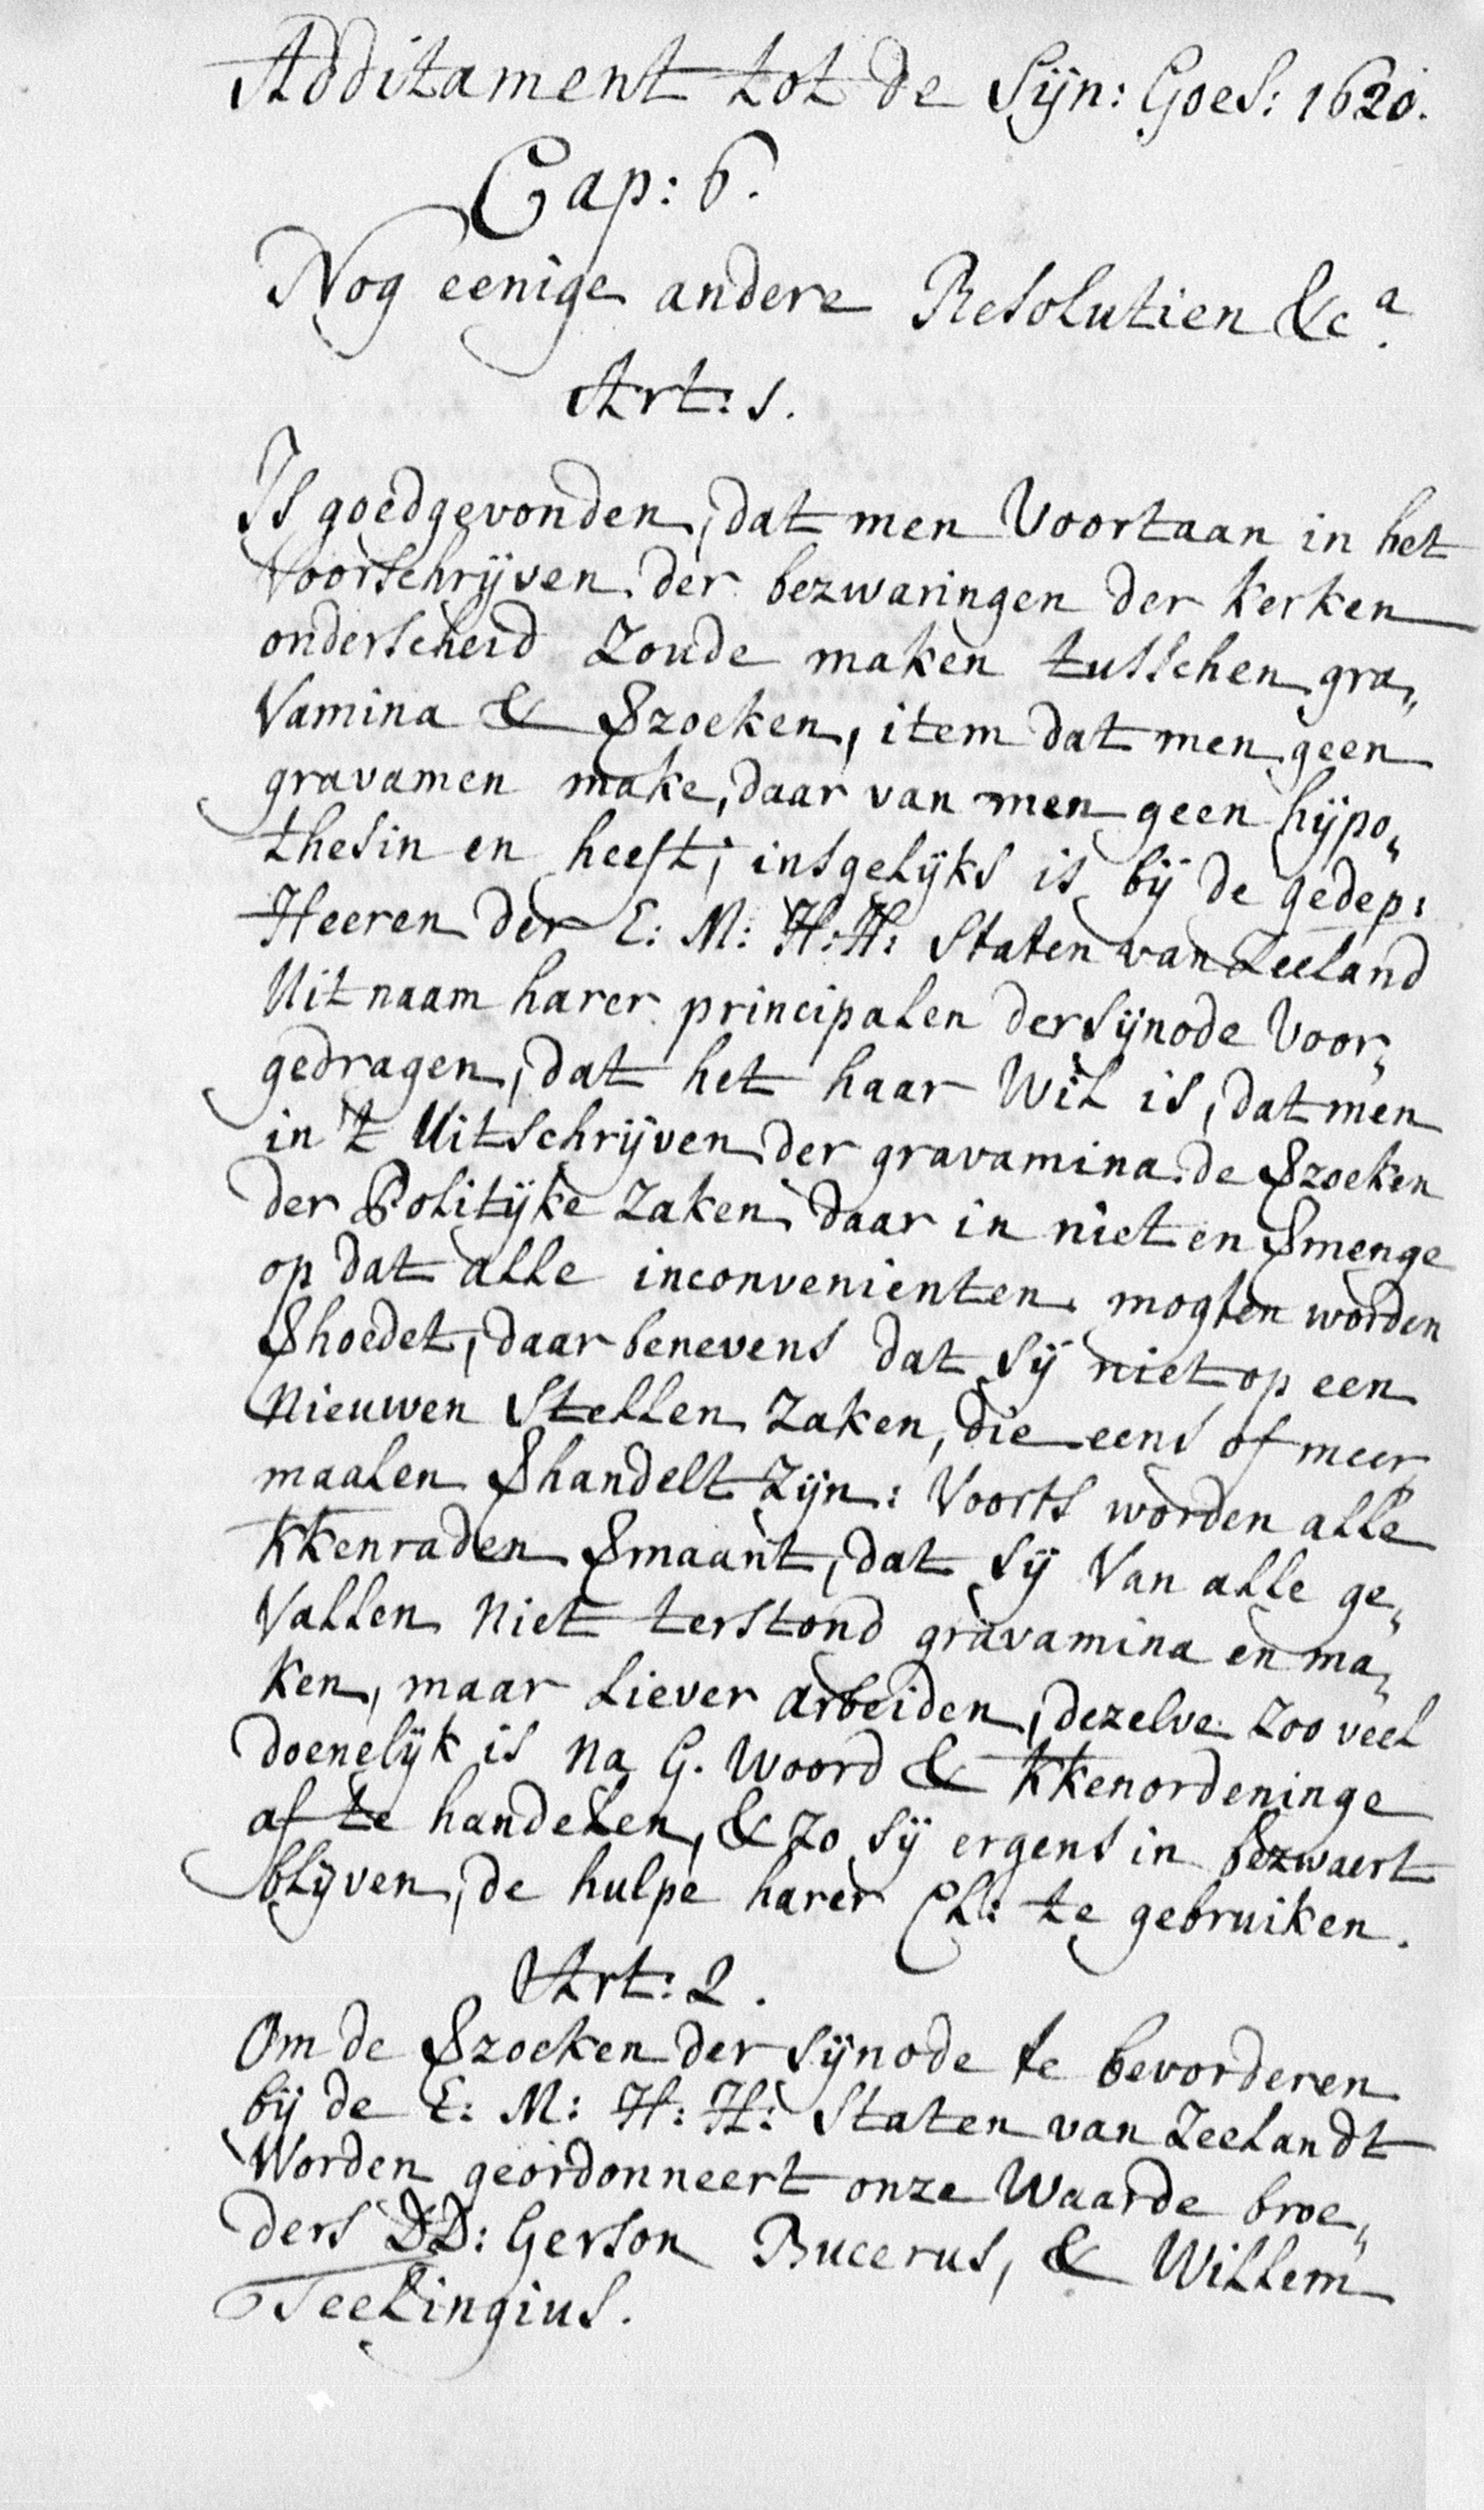 Additament tot de Sÿn: Goes: 1620.
Cap: 6.
Nog eenige andere Resolutien &cª.
Art: 1.
Is goedgevonden, dat men Voortaan in het
Voorschrijven der bezwaringen der Kerken
onderscheid Zoude maken tusschen gra„
Vamina & Vzoeken, item dat men geen
gravamen make, daar van men geen hÿpo„
thesin en heeft; insgelijks is bij de gedep:
Heeren der E: M: H:H: Staten van Zeeland
Uit naam harer principalen der Sÿnode Voor„
gedragen, dat het haar Wil is, dat men
in 't Uitschrijven der gravamina de Vzoeken
der Politijke Zaken daar in niet en Vmenge
op dat alle inconvenienten mogten worden
Vhoedet, daar benevens dat sij niet op een
Nieuwen Stellen Zaken, die eens of meer
maalen Vhandelt Zijn: Voorts worden alle
KKenraden Vmaant, dat sij Van alle ge„
Vallen Niet terstond gravamina en ma„
Ken, maar Liever arbeiden, dezelve zoo veel
doenelijk is Na G. Woord & KKenordeninge
af te handelen, & zo sij ergens in bezwaert
blijven, de hulpe harer Cl: te gebruiken.
Art: 2.
Om de Vzoeken der Sÿnode te bevorderen
bij de E: M: H: H: Staten van Zeelandt
Worden geordonneert onze Waarde broe„
ders DD: Gerson Bucerus, & Willem
Teelingius.